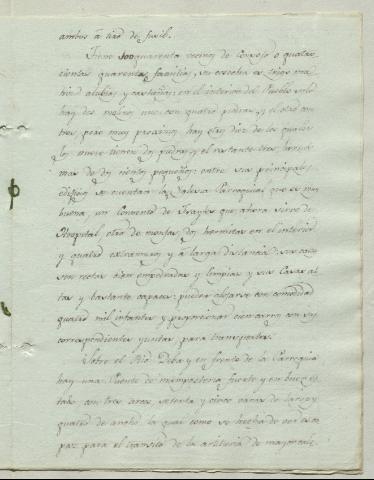 ambos á tiro de fusil.
Tiene 400 quarenta vecinos de Consejo o quatro
cientas quarenta familias, su cosecha es trigo ma-
iz alubias y castañas; en el interior del Pueblo
hay dos molinos uno con quatro piedras, y el otro con
tres pero muy proximos hay diez de los quales
nueve tienen dos piedras, y el restante tres
mas de dos pequeños: entre sus principales
edificios se cuentan la Iglesia Parroquial que es muy
buena, un Convento de Frayles que ahora sirve de
Hospital, otro de monjas, dos hermitas en el interior
y quatro extramuros y á larga distancia: sus calles
son rectas bien empedradas y limpias y sus Casas al-
tas y bastante capaces: pueden alojarse con comodidad
quatro mil infantes y proporcionar cien carros con sus
correspondientes yuntas para transportes.
Sobre el Rio Deba y en frente de la Parroquia
hay una Puente de mamposteria fuerte y en buen es-
tado con tres arcos setenta y cinco varas de largo y
quatro de ancho, la qual como se hecha de ver es ca-
paz para el transito de la artilleria de mayor cali-